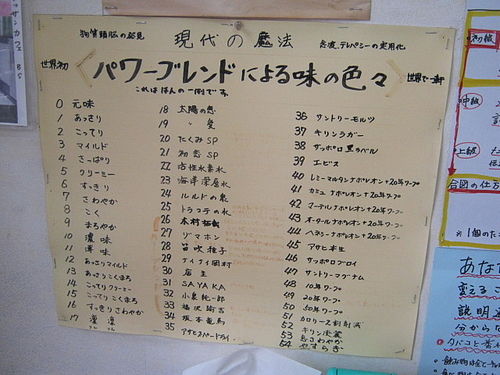 現代の魔法
念波、テレパシーの実用化
世界初
パワーブレンドによる味の色々
世界で一軒
これはほんの一例です
0 元味
1 あっさり
2 こってり
3 マイルド
4 さっぱり
5 クリーミー
6 すっきり
7 さわやか
8 こく
9 まろやか
10 濃味
11 薄味
12 あっさりマイルド
13 あっさりこくまろ
14 こってりクリーミー
15 こってりこくまろ
16 すっきりさわやか
17
18 太陽の恵
19 〃 愛
20 たくみSP
21 初恋SP
22 活性水素水
23 海洋深層水
24 ルルドの泉
25 トラコテの水
26 木村拓哉
27 ヅマホン
28 笛吹雅子
29 ナイナイ岡村
30 店主
31 SAYAKA
32 小泉純一郎
33 福沢諭吉
34 坂本竜馬
35 アサヒスーパードライ
36 サントリーモルツ
37 キリンラガー
38 サッポロ黒ラベル
39 エビス
40 レミーマルタンナポレオン+20年ワープ
41 カミュナポレオン+20年ワープ
42 マーテルナポレオン+20年ワープ
43 オータールナポレオン+20年ワープ
44 ヘネシーナポレオン+20年ワープ
45 アサヒ本生
46 サッポロブロイ
49 サントリーマグナム
48 10年ワープ
49 20年ワープ
50 50年ワープ
51 カロリー2割削減
52 キリン淡麗
53 さわやか
54 やすらぎ
初級
中級
上級
合図の仕方
あなた
変える
説明
分から
タバコと